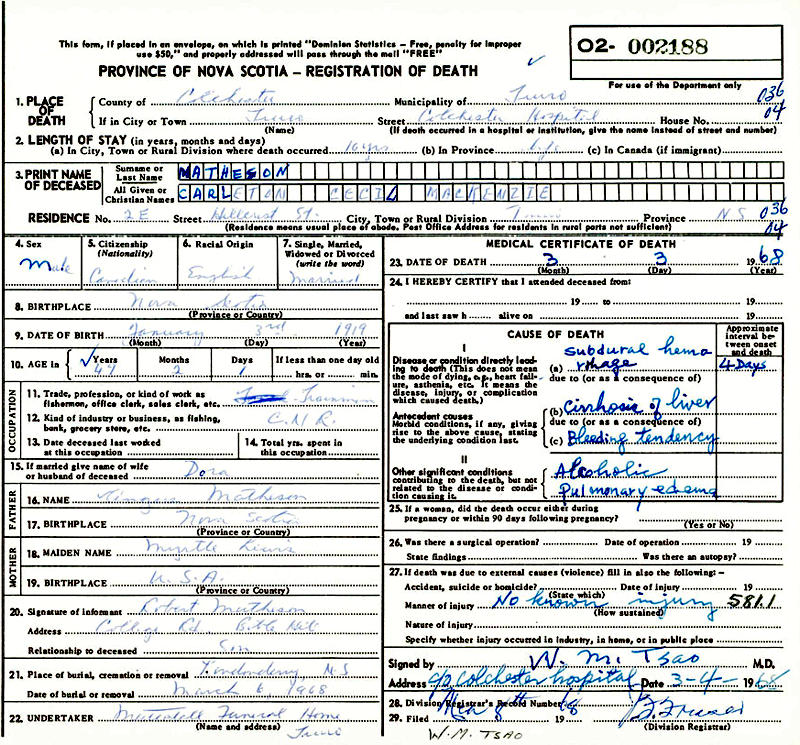 This form, if placed in an envelope, on which is printed "Dominion Statistics – Free, penalty for improper
use $50," and properly addressed will pass through the mail "FREE"
O2- 002188
PROVINCE OF NOVA SCOTIA – REGISTRATION OF DEATH
For use of the Department only
1. PLACE OF DEATH
County of Colchester Municipality of Truro 036
If in City or Town Truro Street Colchester Hospital House No. 04
(Name) (If death occurred in a hospital or institution, give the name instead of street and number)
2. LENGTH OF STAY (in years, months and days)
(a) In City, Town or Rural Division where death occurred 10 yrs (b) In Province life (c) In Canada (if immigrant)
3. PRINT NAME OF DECEASED
Surname or Last Name MATHESON
All Given or Christian Names CARLETON CECIL MACKENZIE
RESIDENCE No. 2E Street Hillcrest St. City, Town or Rural Division Truro Province N S 036
(Residence means usual place of abode. Post Office Address for residents in rural parts not sufficient) 04
4. Sex
Male
5. Citizenship
(Nationality)
Canadian
6. Racial Origin
English
7. Single, Married,
Widowed or Divorced
(write the word)
Married
8. BIRTHPLACE Nova Scotia
(Province or Country)
9. DATE OF BIRTH January 3rd 1919
(Month) (Day) (Year)
10. AGE
Years Months Days If less than one day old
49 2 1 hrs. or min.
OCCUPATION
11. Trade, profession, or kind of work as
fishermen, office clerk, sales clerk, etc. Trainman
12. Kind of industry or business, as fishing,
bank, grocery store, etc. C.N.R.
13. Date deceased last worked
at this occupation
14. Total yrs. spent in
this occupation
15. If married give name of wife
or husband of deceased Dora
FATHER
16. NAME Matheson
17. BIRTHPLACE Nova Scotia
(Province or Country)
MOTHER
18. MAIDEN NAME Myrtle
19. BIRTHPLACE U.S.A.
(Province or Country)
20. Signature of informant Robert Matheson
Address College Rd Bible Hill
Relationship to deceased Son
21. Place of burial, cremation or removal Londonderry N S
Date of burial or removal March 6, 1968
22. UNDERTAKER Mattatall Funeral Home
(Name and address) Truro
MEDICAL CERTIFICATE OF DEATH
23. DATE OF DEATH 3 3 1968
(Month) (Day) (Year)
24. I HEREBY CERTIFY that I attended deceased from:
19 to 19
and last saw h alive on 19
CAUSE OF DEATH
Approximate
interval be-
tween onset
and death
I
Disease or condition directly lead-
ing to death (This does not mean
the mode of dying, e.g., heart fail-
ure, asthenia, etc. It means the
disease, injury, or complication
which caused death.)
subdural hemo
(a) rrhage 4 Days
due to (or as a consequence of)
Antecedent causes
Morbid conditions, if any, giving
rise to the above cause, stating
the underlying condition last.
(b) cirrhosis of liver
due to (or as a consequence of)
(c) Bleeding tendency
II
Other significant conditions
contributing to the death, but not
related to the disease or condi-
tion causing it.
Alcoholic
Pulmonary edema
25. If a woman, did the death occur either during
pregnancy or within 90 days following pregnancy?
(Yes or No)
26. Was there a surgical operation? Date of operation 19
State findings Was there an autopsy?
27. If death was due to external causes (violence) fill in also the following:–
Accident, suicide or homicide? Date of injury 19
(State which)
Manner of injury No known injury 581.1
(How sustained)
Nature of injury
Specify whether injury occurred in industry, in home, or in public place
Signed by W. M. Tsao M.D.
Address c/o Colchester hospital Date 3-4- 1968
28. Division Registrar's Record Number
29. Filed 8 1968
(Division Registrar)
W.M. TSAO